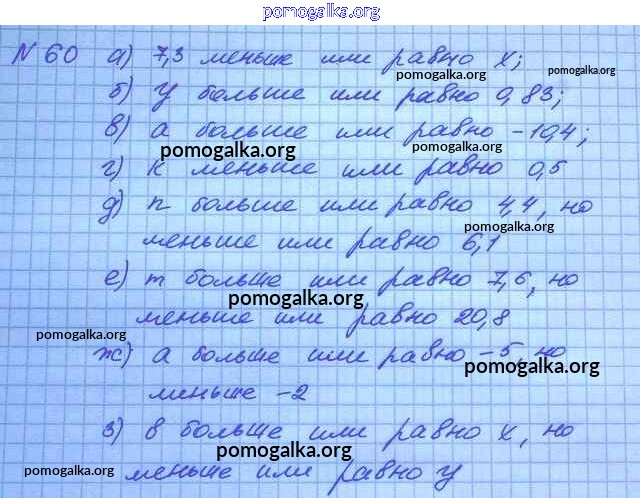 pomogalka.org
N 60 а) 7,3 меньше или равно х;
pomogalka.org pomogalka.org
б) у больше или равно 0,83;
pomogalka.org
в) а больше или равно -10,4;
pomogalka.org pomogalka.org
г) к меньше или равно 0,5
д) n больше или равно 4,4, но
pomogalka.org
меньше или равно 6,1
е) m больше или равно 7,6, но
pomogalka.org
меньше или равно 20,8
pomogalka.org
ж) а больше или равно -5, но
pomogalka.org
меньше -2
з) в больше или равно х, но
pomogalka.org
меньше или равно у
pomogalka.org pomogalka.org